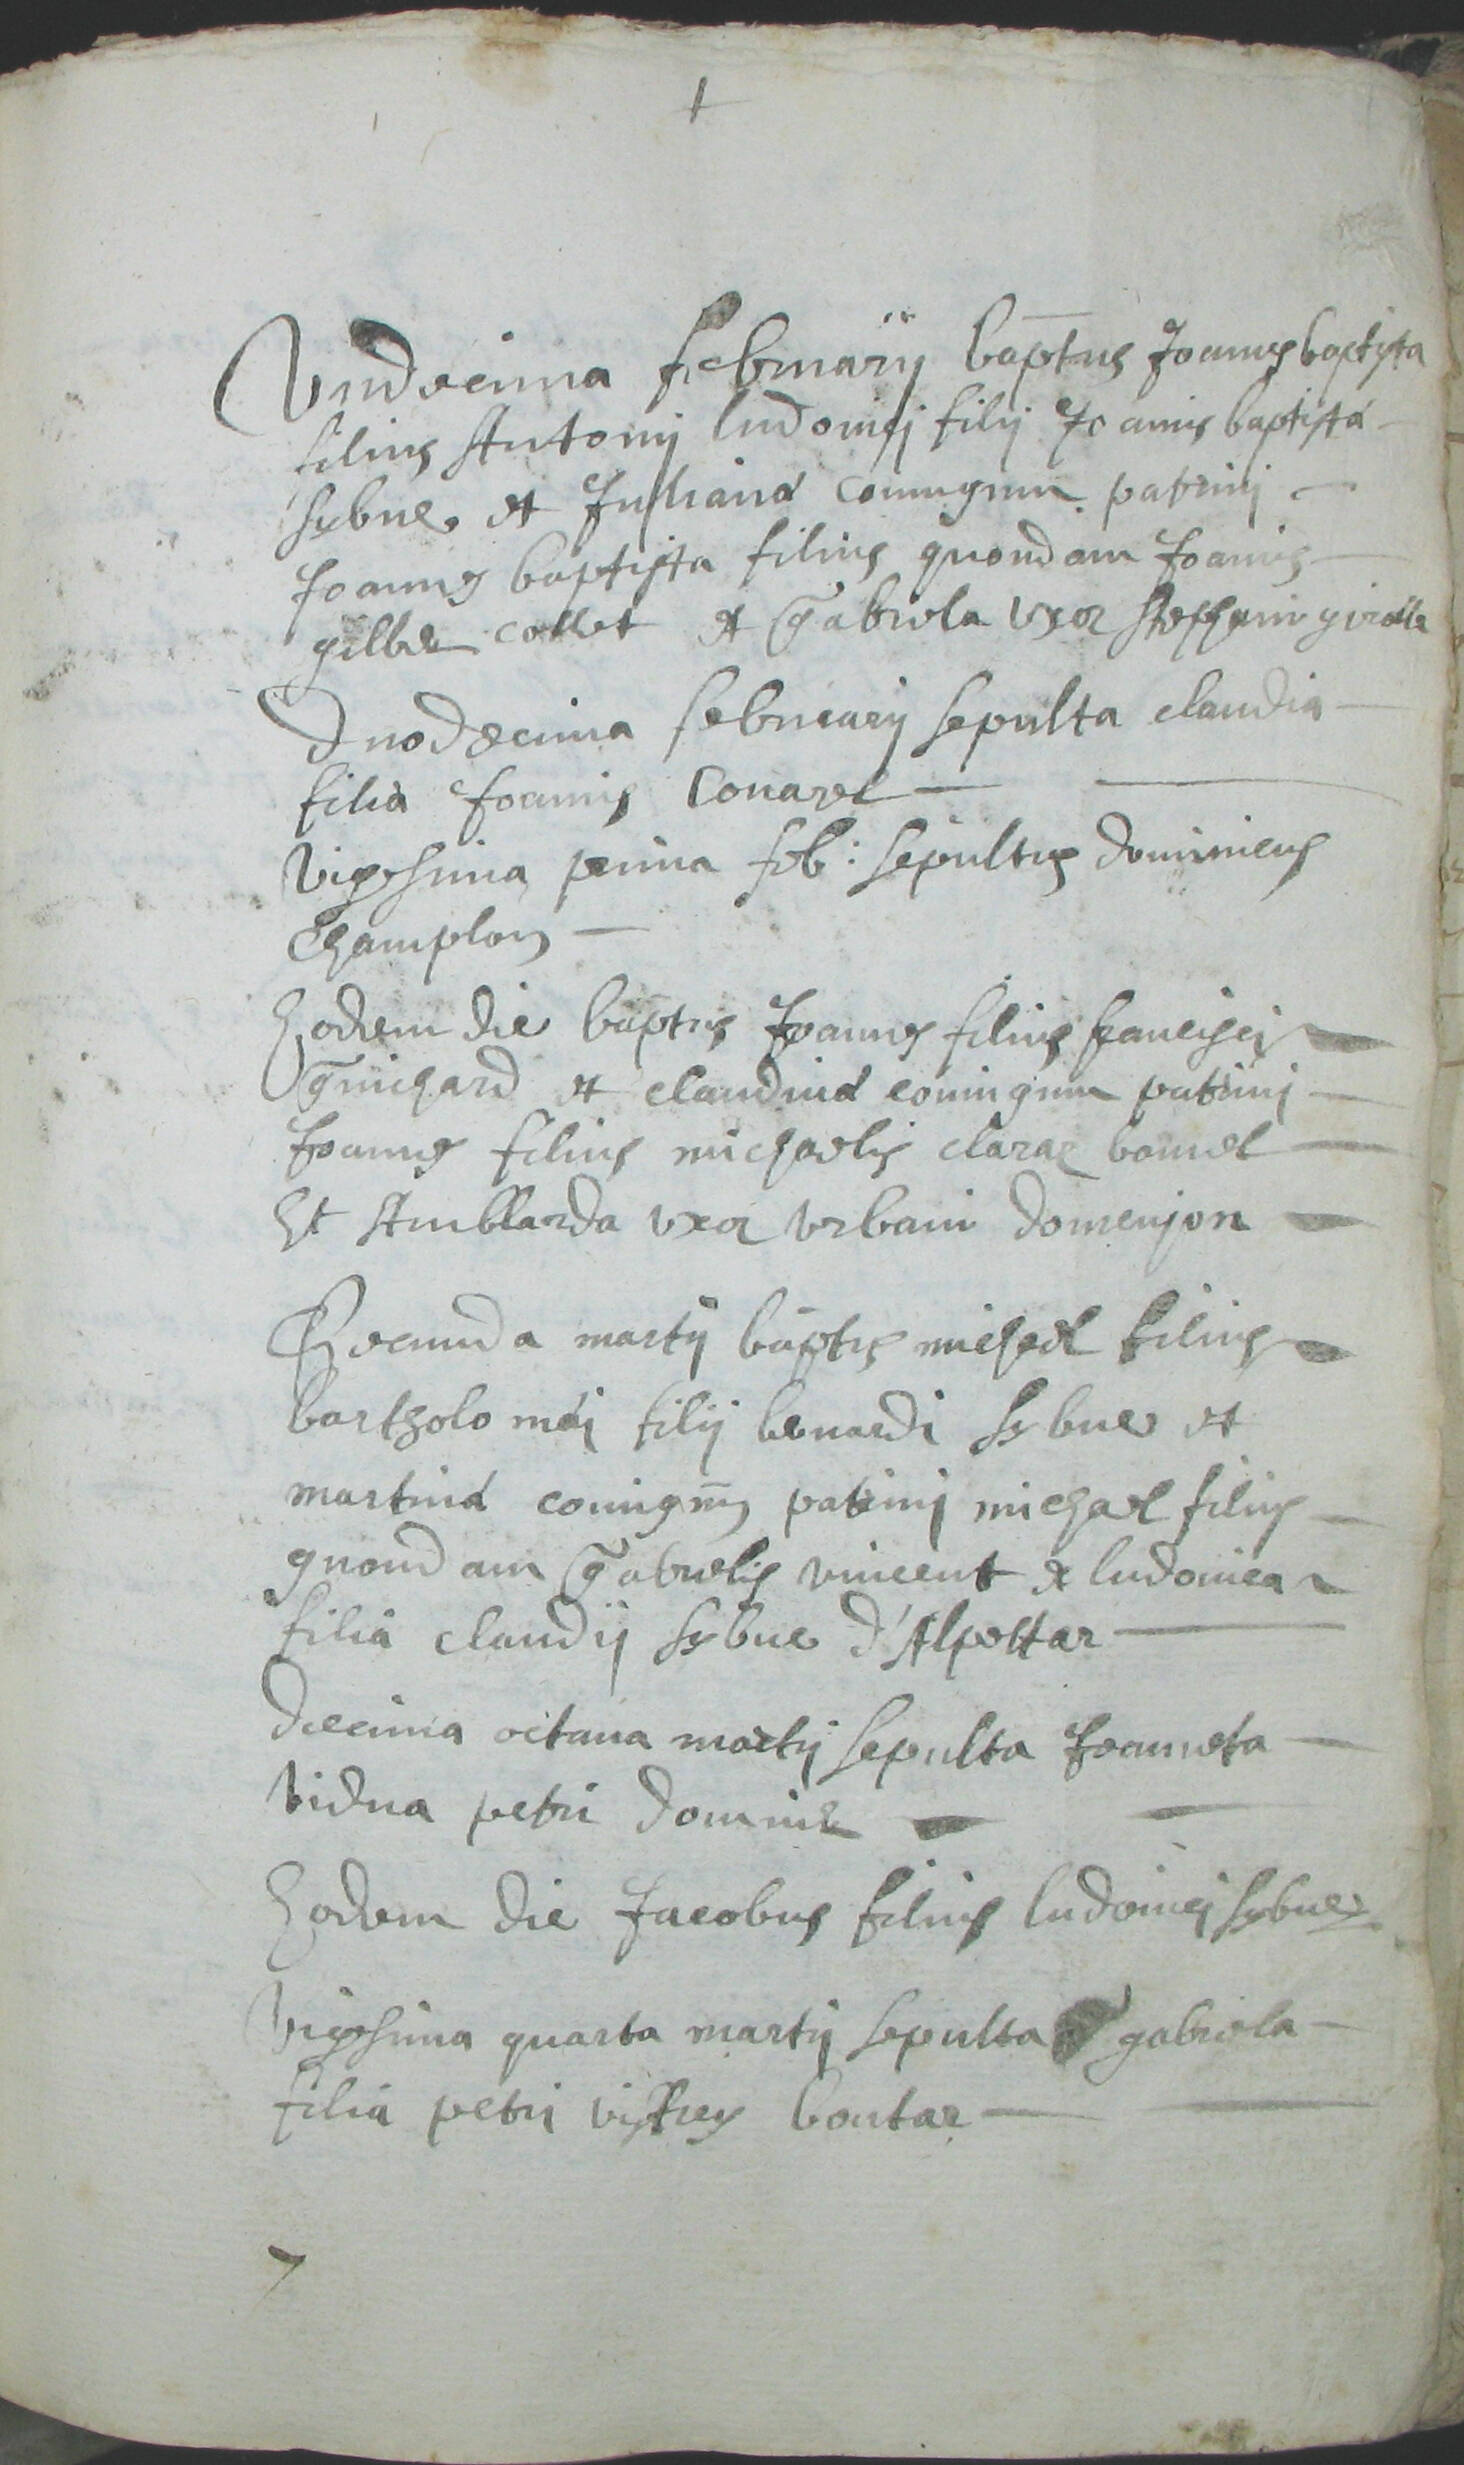 Undecima februarij bap̄tus Joannes baptista
filius Antonij ludovici filij Joānnis baptistæ
sybue et Julianæ coniugum patrini
Joannes baptista filius quondam Joannis
gilbe collet et Gabriela uxor steffani girolle
Duodecima februarij sepulta claudia
filia Joannis Couarel
Vigesima prima feb: sepultus dominicus
Champlon
Eodem die bap̄tus Joannes filius francisci
Guichard et claudinæ coniugum patrini
Joannes filius michaelis claraz bonnel
Et Amblarda uxor urbani domenjon
Secunda martij bap̄tus michael filius
bartholomei filij bernardi sybue et
martinæ coniugū patrini michael filius
quondam Gabrielis vincent et ludovica
filia claudij sybue d'Alpettaz
decima octava martij sepulta Joanneta
vidua petri
Eodem die Jacobus filius ludovici sybue
Vigesima quarta martij sepulta gabriela
filia petri boutaz